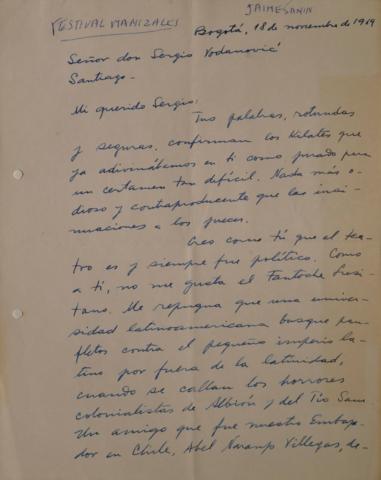 FESTIVAL MANIZALES
JAIME SANIN
Bogotá, 18 de noviembre de 1969
Señor don Sergio Vodanović
Santiago.-
Mi querido Sergio:
Tus palabras, rotundas
y seguras, confirman los kilates que
ya adivinábamos en ti como jurado para
un certamen tan difícil. Nada más o-
dioso y contraproducente que las insi-
nuaciones a los jueces.
Creo como tú que el tea-
tro es y siempre fue político. Como
a ti, no me gusta el Fantoche Lusi-
tano. Me repugna que una univer-
sidad latinoamericana busque pan-
fletos contra el pequeño imperio la-
tino por fuera de la latinidad,
cuando se callan los horrores
colonialistas de Albión y del Tío Sam.
Un amigo que fue nuestro Embaja-
dor en Chile, Abel Naranjo Villegas, de-